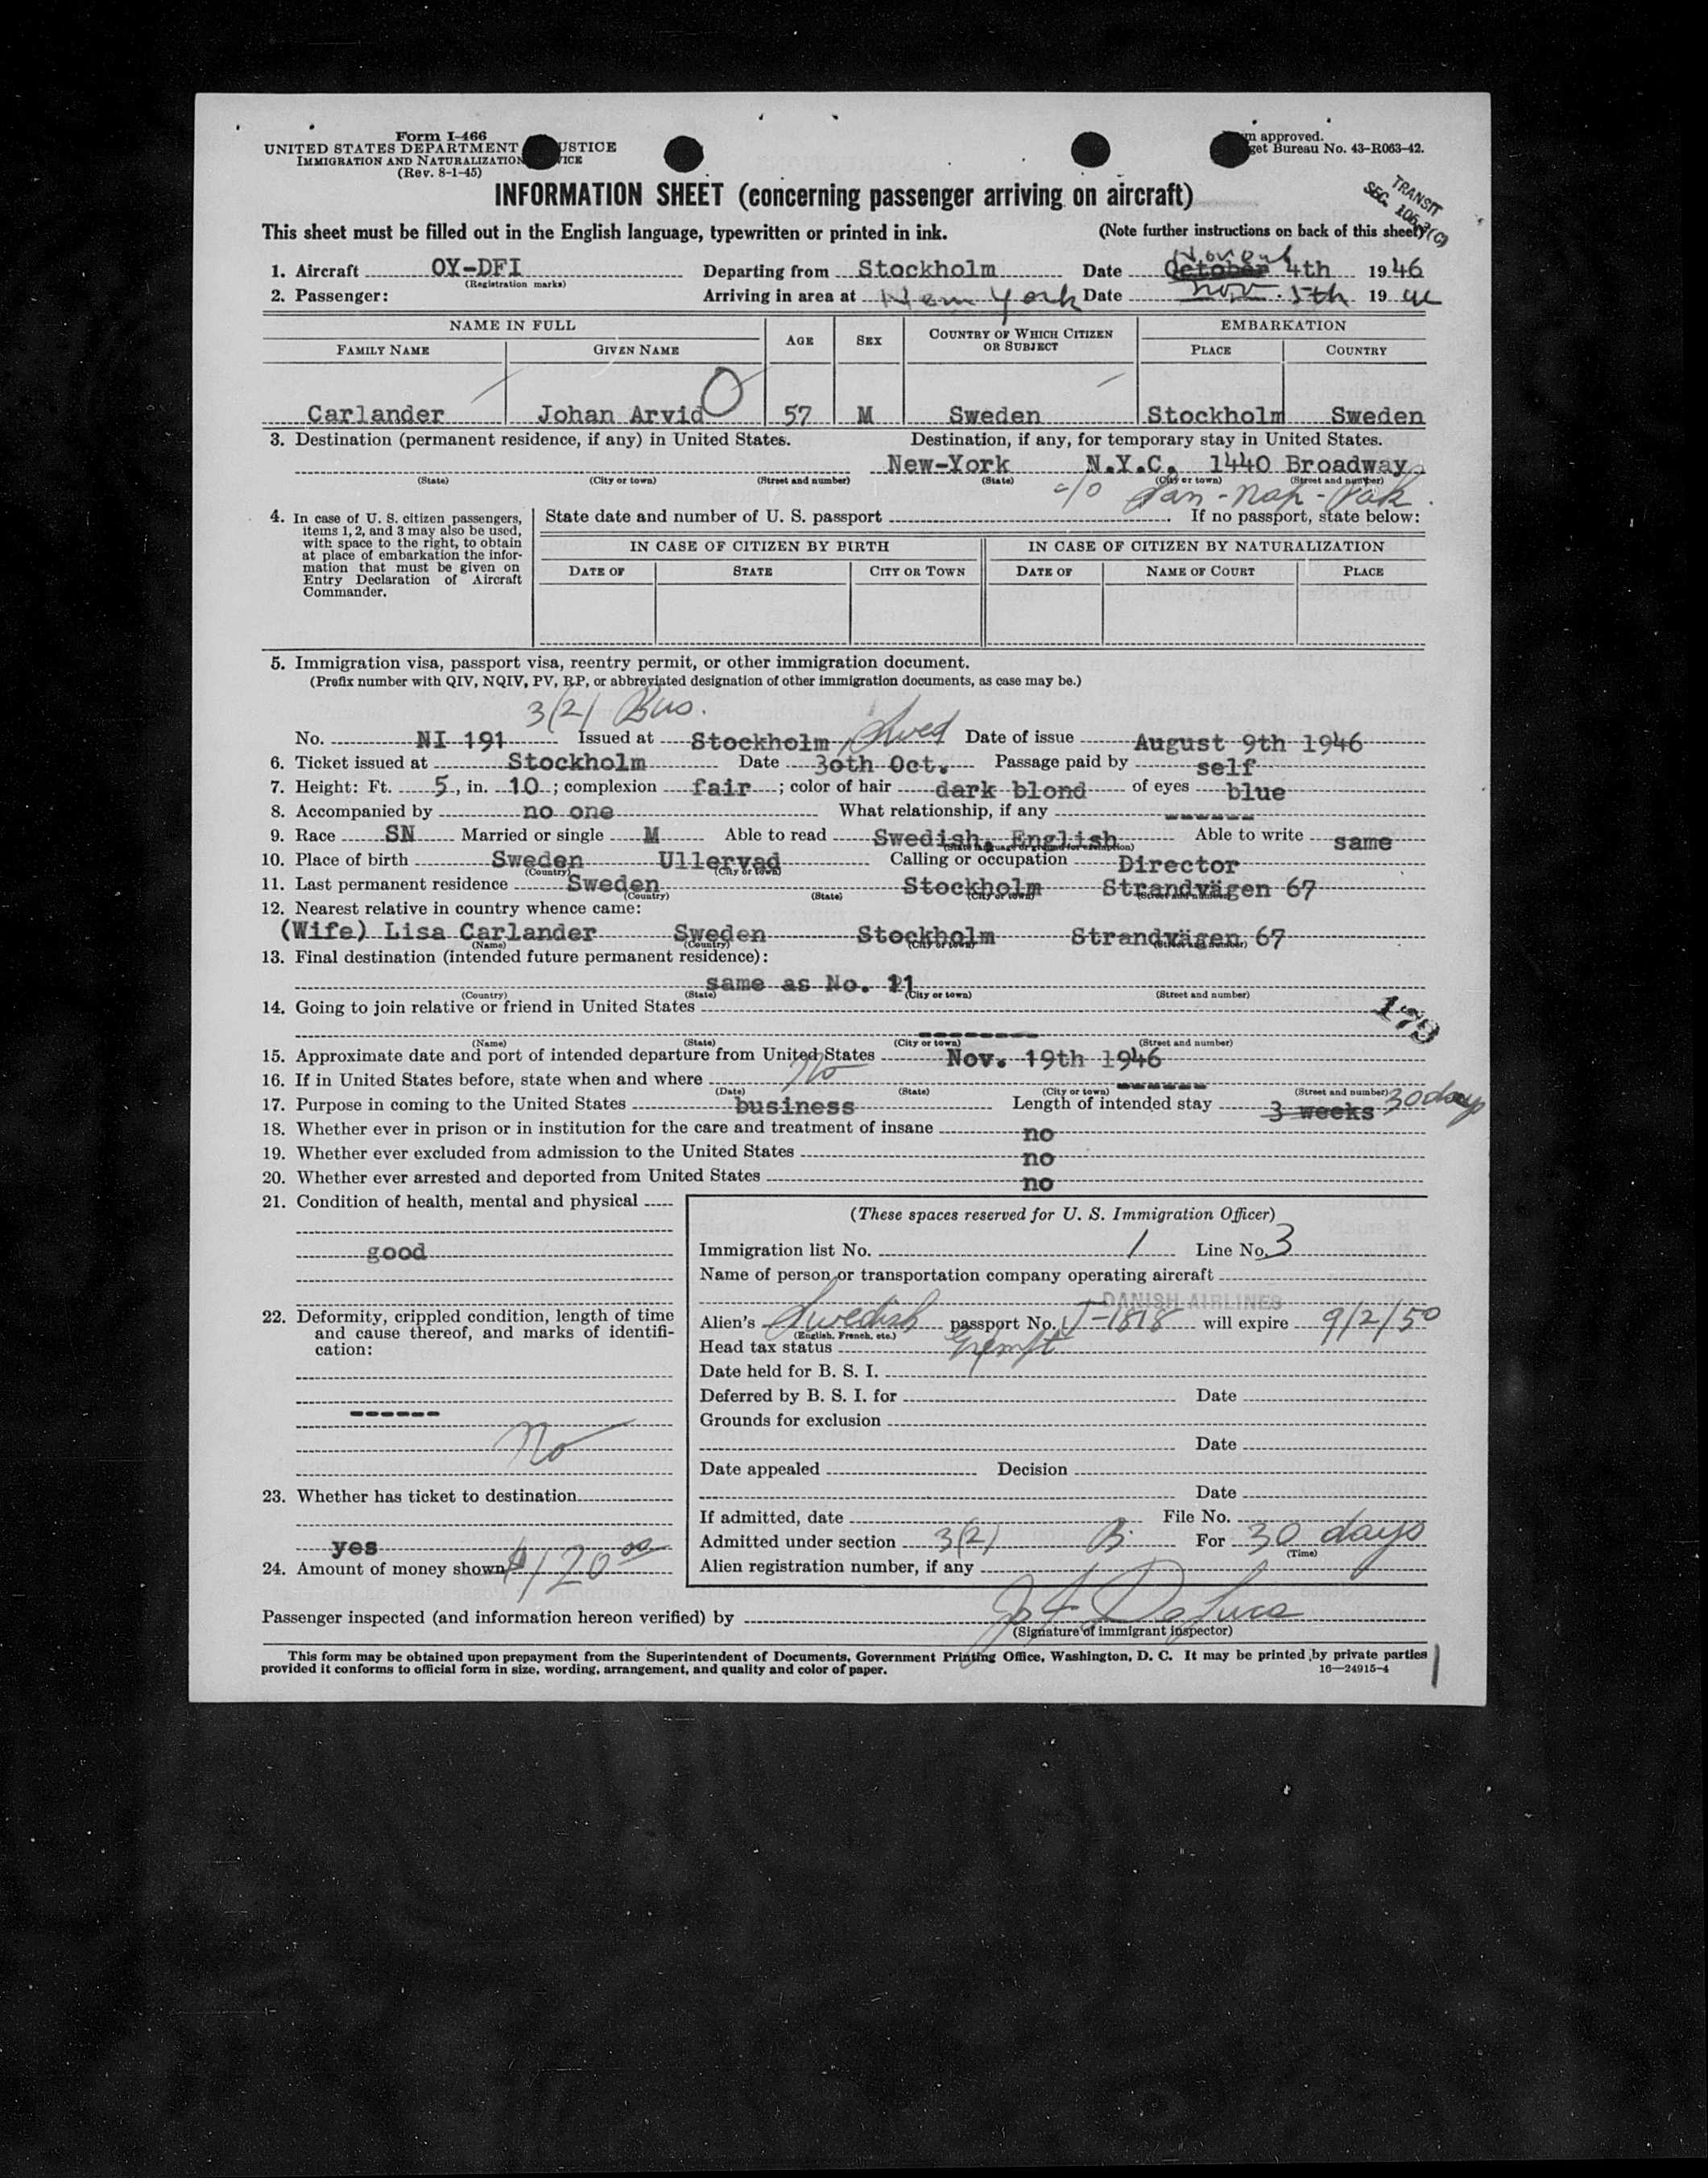 Form I-466
UNITED STATES DEPARTMENT USTICE
IMMIGRATION AND NATURALIZATION VICE
(Rev. 8-1-45)
m approved.
get Bureau No. 43-R063-42.
INFORMATION SHEET (concerning passenger arriving on aircraft)
TRANSIT
SEC. 105.3(C)
This sheet must be filled out in the English language, typewritten or printed in ink. (Note further instructions on back of this sheet)
1. Aircraft OY-DFI Departing from Stockholm Date October 4th 1946
(Registration marks)
2. Passenger: Arriving in area at New York Date Nov. 5th 19
NAME IN FULL AGE SEX COUNTRY OF WHICH CITIZEN OR SUBJECT EMBARKATION
FAMILY NAME GIVEN NAME PLACE COUNTRY
Carlander Johan Arvid 57 M Sweden Stockholm Sweden
3. Destination (permanent residence, if any) in United States. Destination, if any, for temporary stay in United States.
New-York N.Y.C. 1440 Broadway
(State) (City or town) (Street and number) (State) (City or town) (Street and number)
c/o
4. In case of U. S. citizen passengers, items 1, 2, and 3 may also be used, with space to the right, to obtain at place of embarkation the information that must be given on Entry Declaration of Aircraft Commander.
State date and number of U. S. passport If no passport, state below:
IN CASE OF CITIZEN BY BIRTH IN CASE OF CITIZEN BY NATURALIZATION
DATE OF STATE CITY OR TOWN DATE OF NAME OF COURT PLACE
5. Immigration visa, passport visa, reentry permit, or other immigration document.
(Prefix number with QIV, NQIV, PV, RP, or abbreviated designation of other immigration documents, as case may be.)
3(2) Bus.
No. NI 191 Issued at Stockholm, Swed Date of issue August 9th 1946
6. Ticket issued at Stockholm Date 30th Oct. Passage paid by self
7. Height: Ft. 5, in. 10; complexion fair; color of hair dark blond of eyes blue
8. Accompanied by no one What relationship, if any ------
9. Race SN Married or single M Able to read Swedish, English Able to write same
10. Place of birth Sweden Ullervad Calling or occupation Director
(Country) (City or town)
11. Last permanent residence Sweden Stockholm Strandvägen 67
(Country) (State) (City or town) (Street and number)
12. Nearest relative in country whence came:
(Wife) Lisa Carlander Sweden Stockholm Strandvägen 67
(Name) (Country) (City or town) (Street and number)
13. Final destination (intended future permanent residence):
same as No. 11
(Country) (State) (City or town) (Street and number)
14. Going to join relative or friend in United States
173
-------
(Name) (State) (City or town) (Street and number)
15. Approximate date and port of intended departure from United States Nov. 19th 1946
16. If in United States before, state when and where No ------
(Date) (State) (City or town) (Street and number)
17. Purpose in coming to the United States business Length of intended stay 3 weeks 30 days
18. Whether ever in prison or in institution for the care and treatment of insane no
19. Whether ever excluded from admission to the United States no
20. Whether ever arrested and deported from United States no
21. Condition of health, mental and physical
good
22. Deformity, crippled condition, length of time and cause thereof, and marks of identification:
------
No
23. Whether has ticket to destination
yes
24. Amount of money shown $120.00
(These spaces reserved for U. S. Immigration Officer)
Immigration list No. 1 Line No. 3
Name of person or transportation company operating aircraft
DANISH AIRLINES
Alien's Swedish passport No. J-1818 will expire 9/2/50
(English, French, etc.)
Head tax status Exempt
Date held for B. S. I.
Deferred by B. S. I. for Date
Grounds for exclusion
Date
Date appealed Decision
Date
If admitted, date File No.
Admitted under section 3(2) B. For 30 days
(Time)
Alien registration number, if any
Passenger inspected (and information hereon verified) by
(Signature of immigrant inspector)
This form may be obtained upon prepayment from the Superintendent of Documents, Government Printing Office, Washington, D. C. It may be printed by private parties
provided it conforms to official form in size, wording, arrangement, and quality and color of paper. 16—24915-4